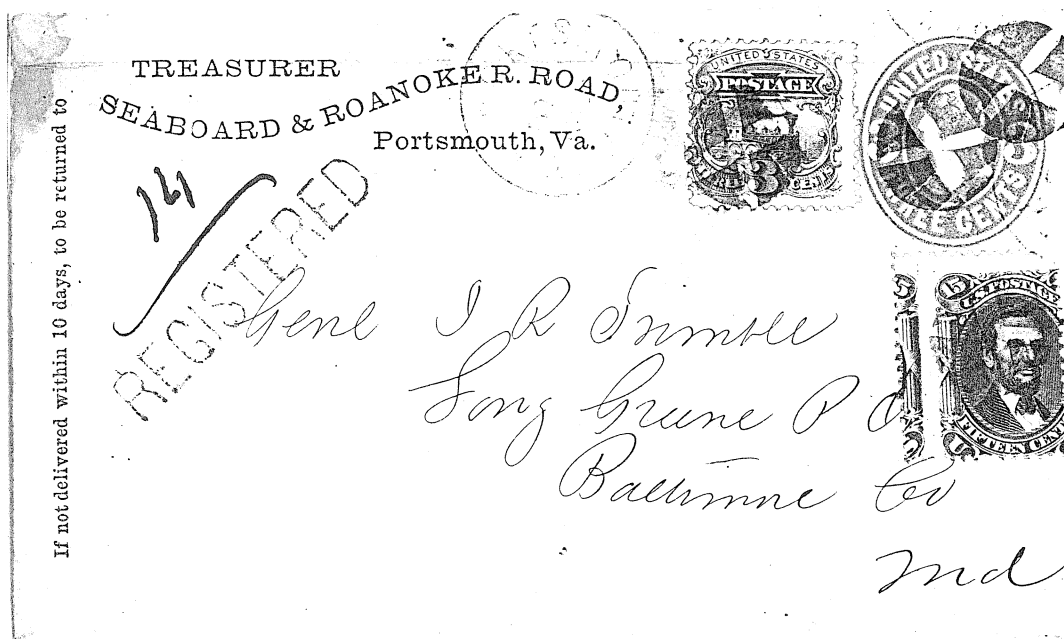 If not delivered within 10 days, to be returned to
TREASURER
SEABOARD & ROANOKE R. ROAD,
Portsmouth, Va.
161
REGISTERED
UNITED STATES
POSTAGE
THREE 3 CENTS
UNITED STATES
THREE CENTS
15
U.S. POSTAGE
FIFTEEN CENTS
Genl I R Trimble
Long Greene P O
Baltimore Co
Md